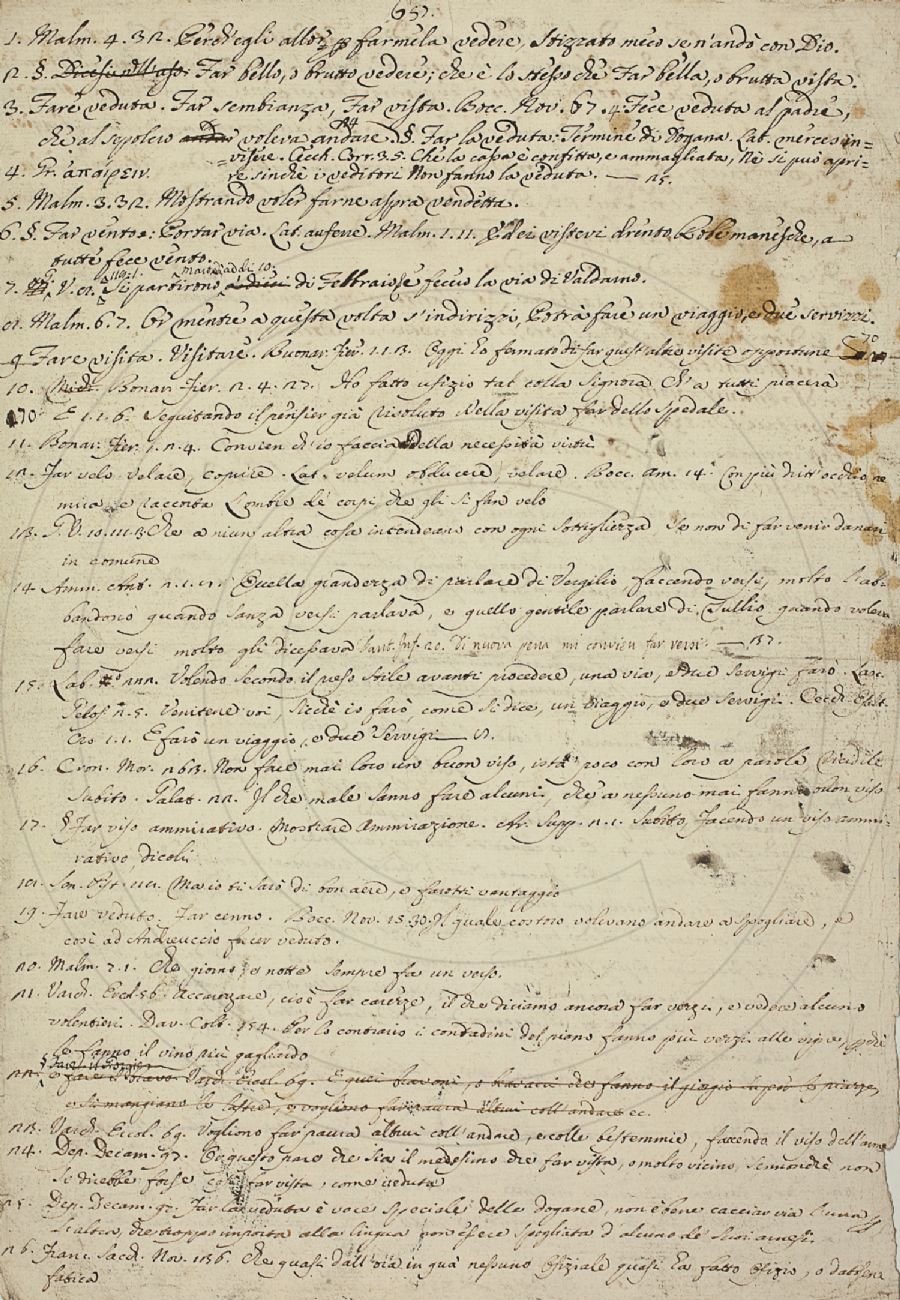 657.
1. Malm. 4. 32. Perch'egli allor p farmela vedere, Stizzato meco se n'andò con Dio.
2. §. Far bello, o brutto vedere; che è lo stesso che Far bella, o brutta vista.
3. Fare veduta. Far sembianza, Far vista. Bocc. Nov. 67. 4. Fece veduta al padre,
che al sepolcro voleva andare. §. Far la veduta: Termine di Dogana. Lat. merces in=
=visere. Cecch. Corr. 3. 5. Che la capa è confitta, e ammagliata, nè si può apri=
4. Gr. ἀπαίρειν. re sinchè i veditori Non fanno la veduta. — 25.
5. Malm. 3. 32. Mostrando voler farne aspra vendetta.
6. §. Far vento: Portar via. Lat. auferre. Malm. 1. 11. vistevi drento Robe manesche, a
tutte fece vento.
7. Si partirono Martedì addì 10. di Febbraio, e feciono la via di Valdarno.
8. Malm. 6. 7. Or mentre a questa volta s'indirizzi, Potrà fare un viaggio, e due servizzi.
9. Fare visita. Visitare. Buonar. Fier. 1. 1. 3. Oggi ho fermato di far quest'altre visite opportune
10. Bonar. Fier. 2. 4. 27. Ho fatto ufizio tal colla Signora, Ch'a tutti piacerà
E 1. 1. 6. Seguitando il pensier già risoluto Nella visita far dello Spedale.
11. Bonar. Fier. 1. 2. 4. Convien ch'io faccia della necessità virtù
12. Far velo. Velare, Coprire. Lat. velum obducere, velare. Bocc. am. 14. Con più dritt'occhio re
mira, e racconta L'ombre de' corpi, che gli si fan velo
13. Che a niun'altra cosa intendeano con ogni sottigliezza, se non di far venir danari
in comune
14. Amm. Ant. Quella grandezza di parlare di Vergilio, faccendo versi, molto l'ab=
bandonò quando sanza versi parlava, e quello gentile parlare di Tullio, quando voleva
fare versi molto gli dicessava Dant. Inf. 20. Di nuova pena mi convien far versi. — 137.
15. Lab. 222. Volendo secondo il peso stile avanti procedere, una via, e due servigi farò. Lasc.
Gelos. 2. 5. Venitene voi, sicchè io farò, come si dice, un viaggio, e due servigi. Cecch.
1. 1. E farò un viaggio, e due servigi — 8.
16. Cron. Mor. 263. Non fare mai loro un buon viso, istà poco con loro a parole
subito. Palat. 22. Il che male sanno fare alcuni, che a nessuno mai fanno buon viso
17. § Far viso ammirativo. Mostrare Ammirazione. Ar. Supp. 2. 1. Subito, facendo un viso ammi=
rativo, dicoli
18. Ma io ti sarò di bon aere, e farotti vantaggio
19. Fare veduto. Far cenno. Bocc. Nov. 15. 30. Il quale costoro volevano andare a spogliare, e
così ad Andreuccio fecer veduto.
20. Malm. 7. 1. Che giorno, e notte sempre fa un verso.
21. Varch. Ercol. 56. Accarezzare, cioè far carezze, il che diciamo ancora far vezzi, e vedere alcuno
volentieri. Dav. Colt. 154. Per lo contrario i contadini del piano fanno più vezzi alle viti,
le fanno il vino più gagliardo
22. o fare il bravo. Varch. Ercol. 69. E quei bravoni, o bravacci che fanno il giorgio
e si mangiano le lastre, e vogliono far paura altrui coll'andare ec.
23. Varch. Ercol. 69. Vogliono far paura altrui coll'andare, e colle bestemmie, facendo il viso dell'arme
24. Dep. Decam. 97. E questo pare che sia il medesimo che far vista, o molto vicino, se non che non
si direbbe forse così far vista, come veduta
25. Dep. Decam. 97. Far la veduta è voce speciale delle dogane, non è bene cacciar via l'una p
l'altra, che troppo importa alla lingua non essere spogliata d'alcuno de' suoi arnesi.
26. Franc. Sacch. Nov. 156. Che quasi dall'ora in qua nessuno Ofiziale quasi ha fatto Ofizio, o
fatica